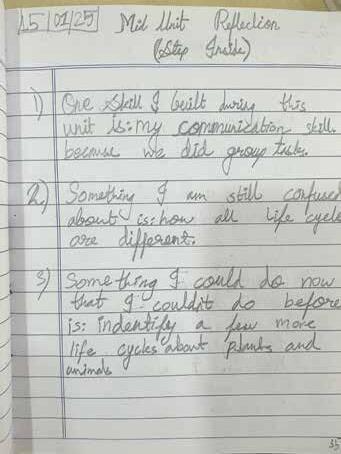 15/01/25 Mid Unit Reflection
(Step Inside)
1) One skill I built during this
unit is: my communication skill.
because we did group tasks.
2) Something I am still confused
about is: how all life cycle
are different.
3) Something I could do now
that I couldn't do before
is: indentify a few more
life cycles about plants and
animals